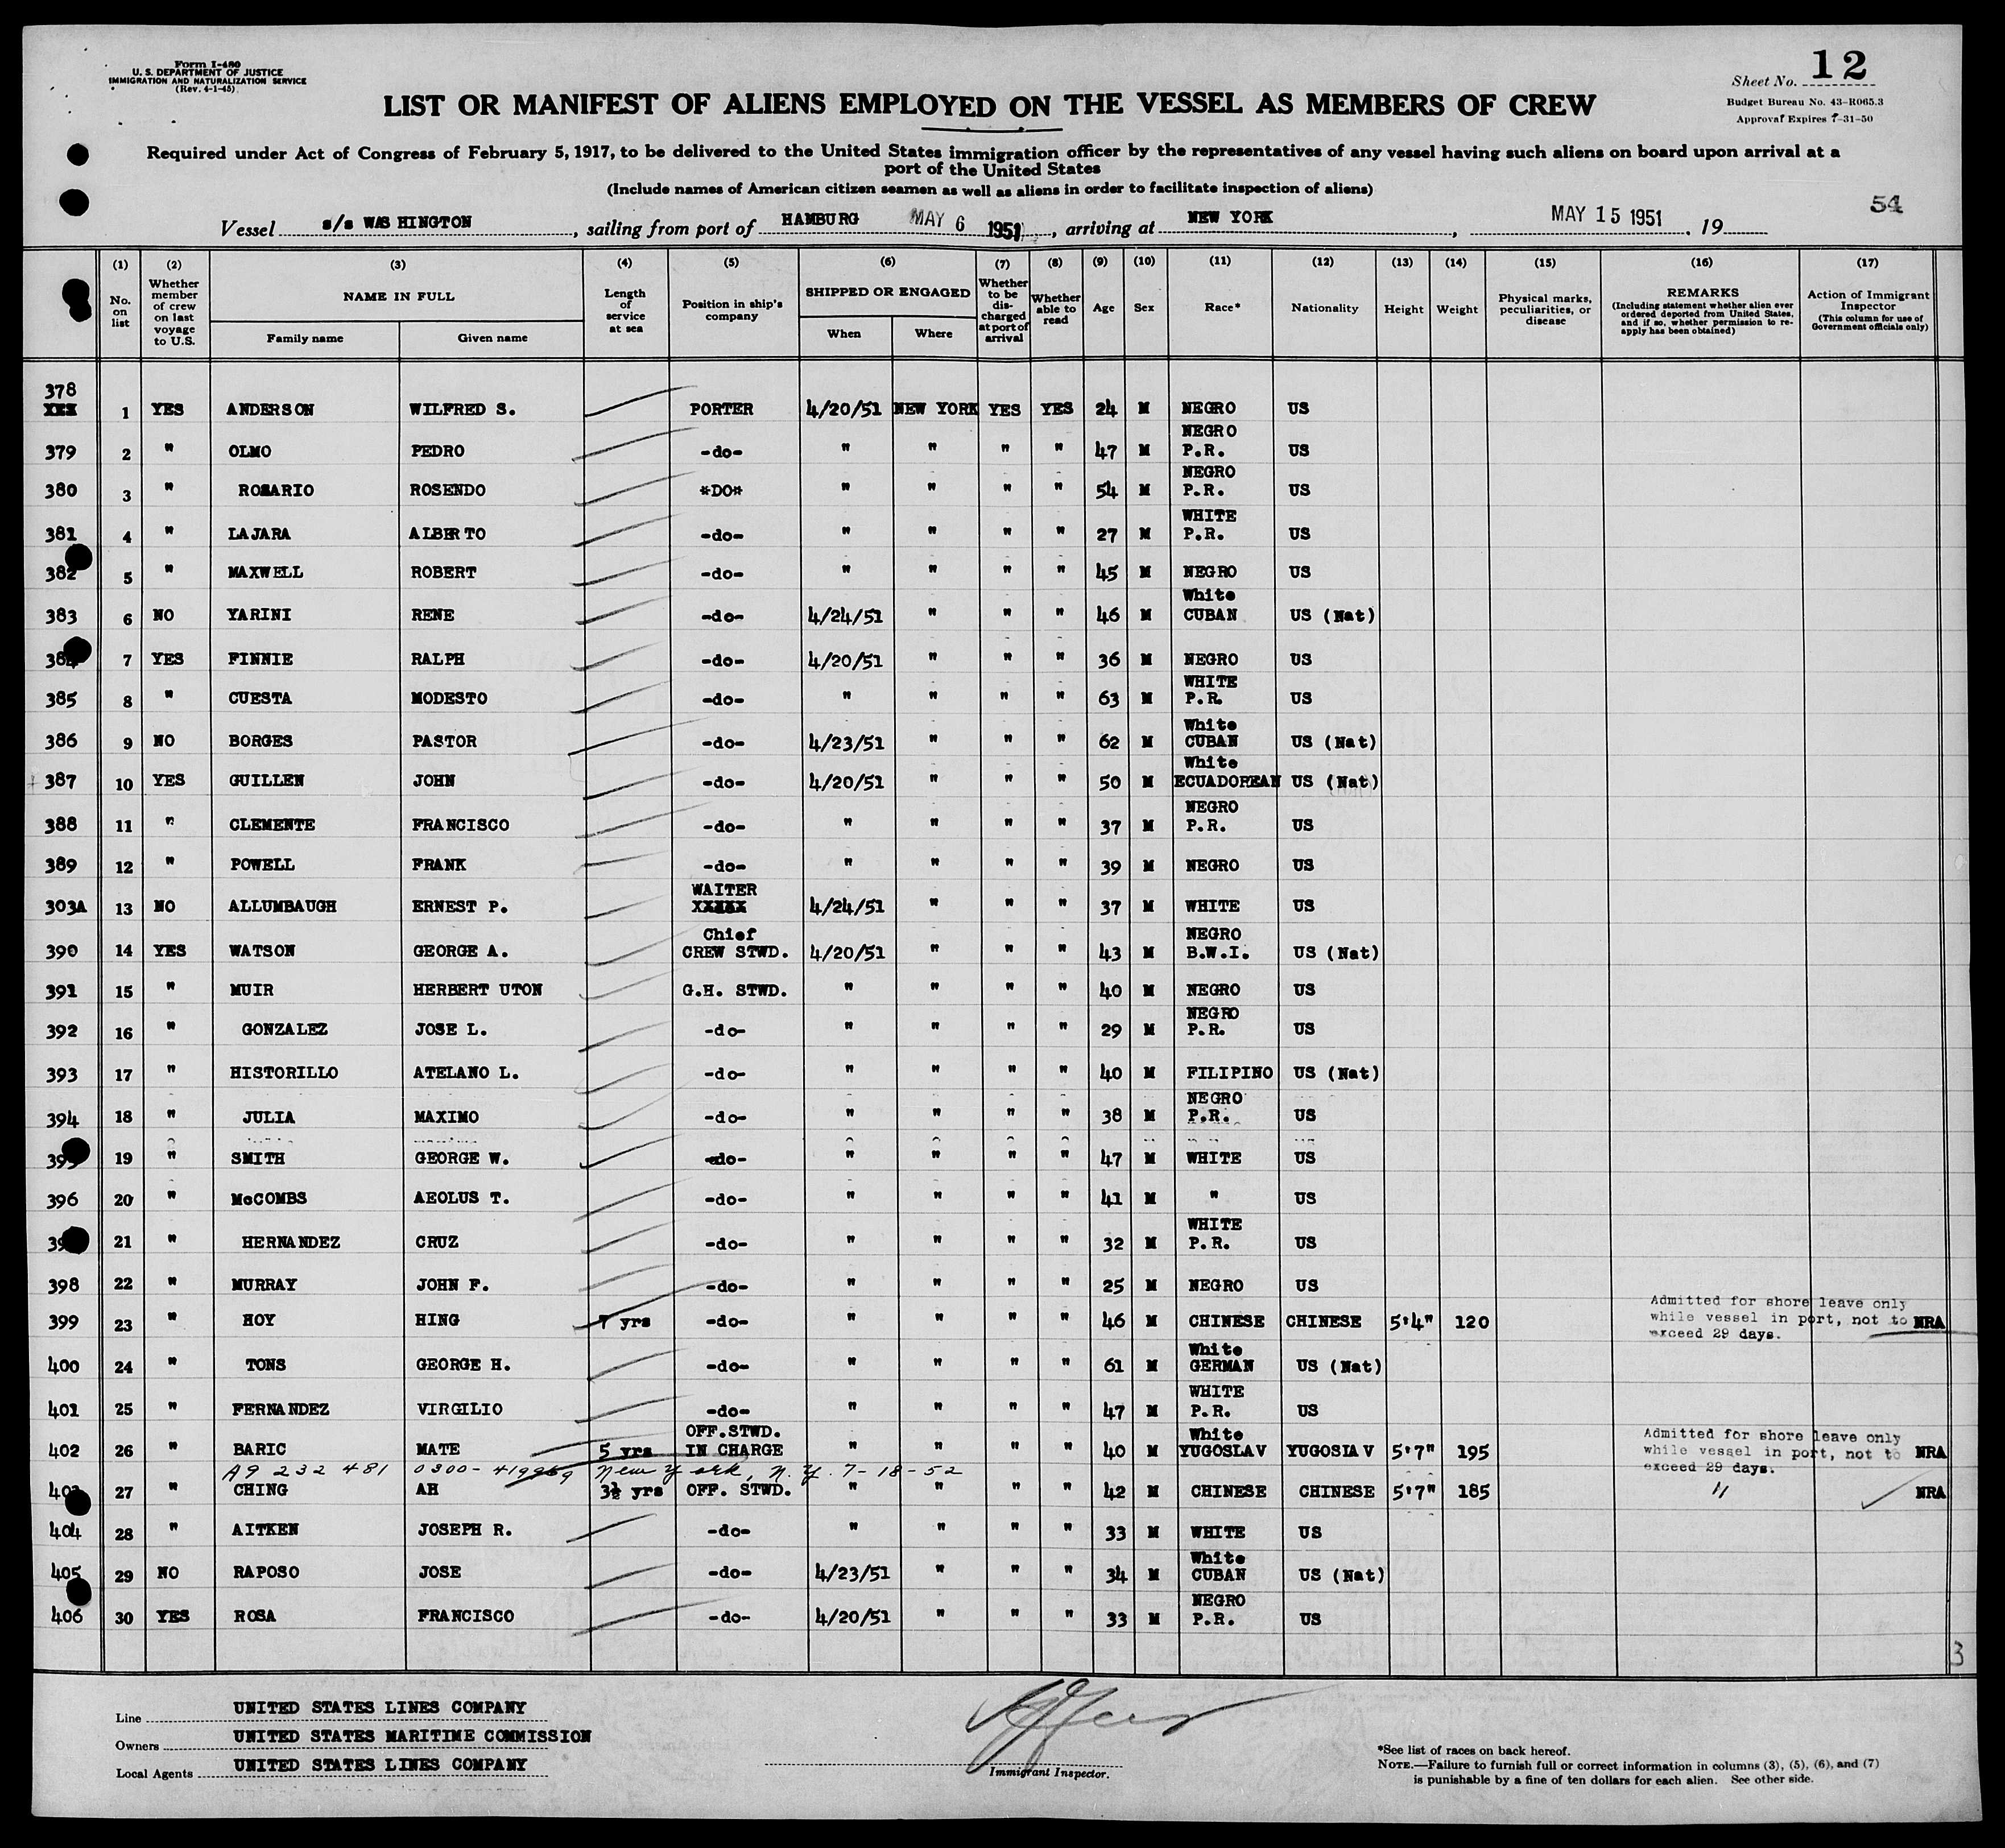 Form I-480
U. S. DEPARTMENT OF JUSTICE
IMMIGRATION AND NATURALIZATION SERVICE
(Rev. 4-1-45)
Sheet No. 12
Budget Bureau No. 43-R065.3
Approval Expires 7-31-50
LIST OR MANIFEST OF ALIENS EMPLOYED ON THE VESSEL AS MEMBERS OF CREW
Required under Act of Congress of February 5, 1917, to be delivered to the United States immigration officer by the representatives of any vessel having such aliens on board upon arrival at a
port of the United States
(Include names of American citizen seamen as well as aliens in order to facilitate inspection of aliens)
54
Vessel s/s WASHINGTON, sailing from port of HAMBURG MAY 6 1951, arriving at NEW YORK, MAY 15 1951, 19
(1) No. on list (2) Whether member of crew on last voyage to U.S. (3) NAME IN FULL Family name Given name (4) Length of service at sea (5) Position in ship's company (6) SHIPPED OR ENGAGED When Where (7) Whether to be discharged at port of arrival (8) Whether able to read (9) Age (10) Sex (11) Race* (12) Nationality (13) Height (14) Weight (15) Physical marks, peculiarities, or disease (16) REMARKS (Including statement whether alien ever ordered deported from United States, and if so, whether permission to reapply has been obtained) (17) Action of Immigrant Inspector (This column for use of Government officials only)
378 1 YES ANDERSON WILFRED S. PORTER 4/20/51 NEW YORK YES YES 24 M NEGRO US
379 2 " OLMO PEDRO -do- " " " " 47 M NEGRO P.R. US
380 3 " ROSARIO ROSENDO *DO* " " " " 54 M NEGRO P.R. US
381 4 " LAJARA ALBERTO -do- " " " " 27 M WHITE P.R. US
382 5 " MAXWELL ROBERT -do- " " " " 45 M NEGRO US
383 6 NO YARINI RENE -do- 4/24/51 " " " 46 M White CUBAN US (Nat)
384 7 YES FINNIE RALPH -do- 4/20/51 " " " 36 M NEGRO US
385 8 " CUESTA MODESTO -do- " " " " 63 M WHITE P.R. US
386 9 NO BORGES PASTOR -do- 4/23/51 " " " 62 M White CUBAN US (Nat)
387 10 YES GUILLEN JOHN -do- 4/20/51 " " " 50 M White ECUADOREAN US (Nat)
388 11 " CLEMENTE FRANCISCO -do- " " " " 37 M NEGRO P.R. US
389 12 " POWELL FRANK -do- " " " " 39 M NEGRO US
303A 13 NO ALLUMBAUGH ERNEST P. WAITER XXXXX 4/24/51 " " " 37 M WHITE US
390 14 YES WATSON GEORGE A. Chief CREW STWD. 4/20/51 " " " 43 M NEGRO B.W.I. US (Nat)
391 15 " MUIR HERBERT UTON G.H. STWD. " " " " 40 M NEGRO US
392 16 " GONZALEZ JOSE L. -do- " " " " 29 M NEGRO P.R. US
393 17 " HISTORILLO ATELANO L. -do- " " " " 40 M FILIPINO US (Nat)
394 18 " JULIA MAXIMO -do- " " " " 38 M NEGRO P.R. US
395 19 " SMITH GEORGE W. -do- " " " " 47 M WHITE US
396 20 " McCOMBS AEOLUS T. -do- " " " " 41 M " US
21 " HERNANDEZ CRUZ -do- " " " " 32 M WHITE P.R. US
398 22 " MURRAY JOHN F. -do- " " " " 25 M NEGRO US
399 23 " HOY HING 7 yrs -do- " " " " 46 M CHINESE CHINESE 5'4" 120 Admitted for shore leave only while vessel in port, not to exceed 29 days. NRA
400 24 " TONS GEORGE H. -do- " " " " 61 M White GERMAN US (Nat)
401 25 " FERNANDEZ VIRGILIO -do- " " " " 47 M WHITE P.R. US
402 26 " BARIC MATE 5 yrs OFF.STWD. IN CHARGE " " " " 40 M White YUGOSLAV YUGOSLAV 5'7" 195 Admitted for shore leave only while vessel in port, not to exceed 29 days. NRA
A9 232 481 0300- 419969 New York, N.Y. 7-18-52
403 27 " CHING AH 3½ yrs OFF. STWD. " " " " 42 M CHINESE CHINESE 5'7" 185 " NRA
404 28 " AITKEN JOSEPH R. -do- " " " " 33 M WHITE US
405 29 NO RAPOSO JOSE -do- 4/23/51 " " " 34 M White CUBAN US (Nat)
406 30 YES ROSA FRANCISCO -do- 4/20/51 " " " 33 M NEGRO P.R. US
3
Line UNITED STATES LINES COMPANY
Owners UNITED STATES MARITIME COMMISSION
Local Agents UNITED STATES LINES COMPANY
Immigrant Inspector.
*See list of races on back hereof.
NOTE.—Failure to furnish full or correct information in columns (3), (5), (6), and (7)
is punishable by a fine of ten dollars for each alien. See other side.